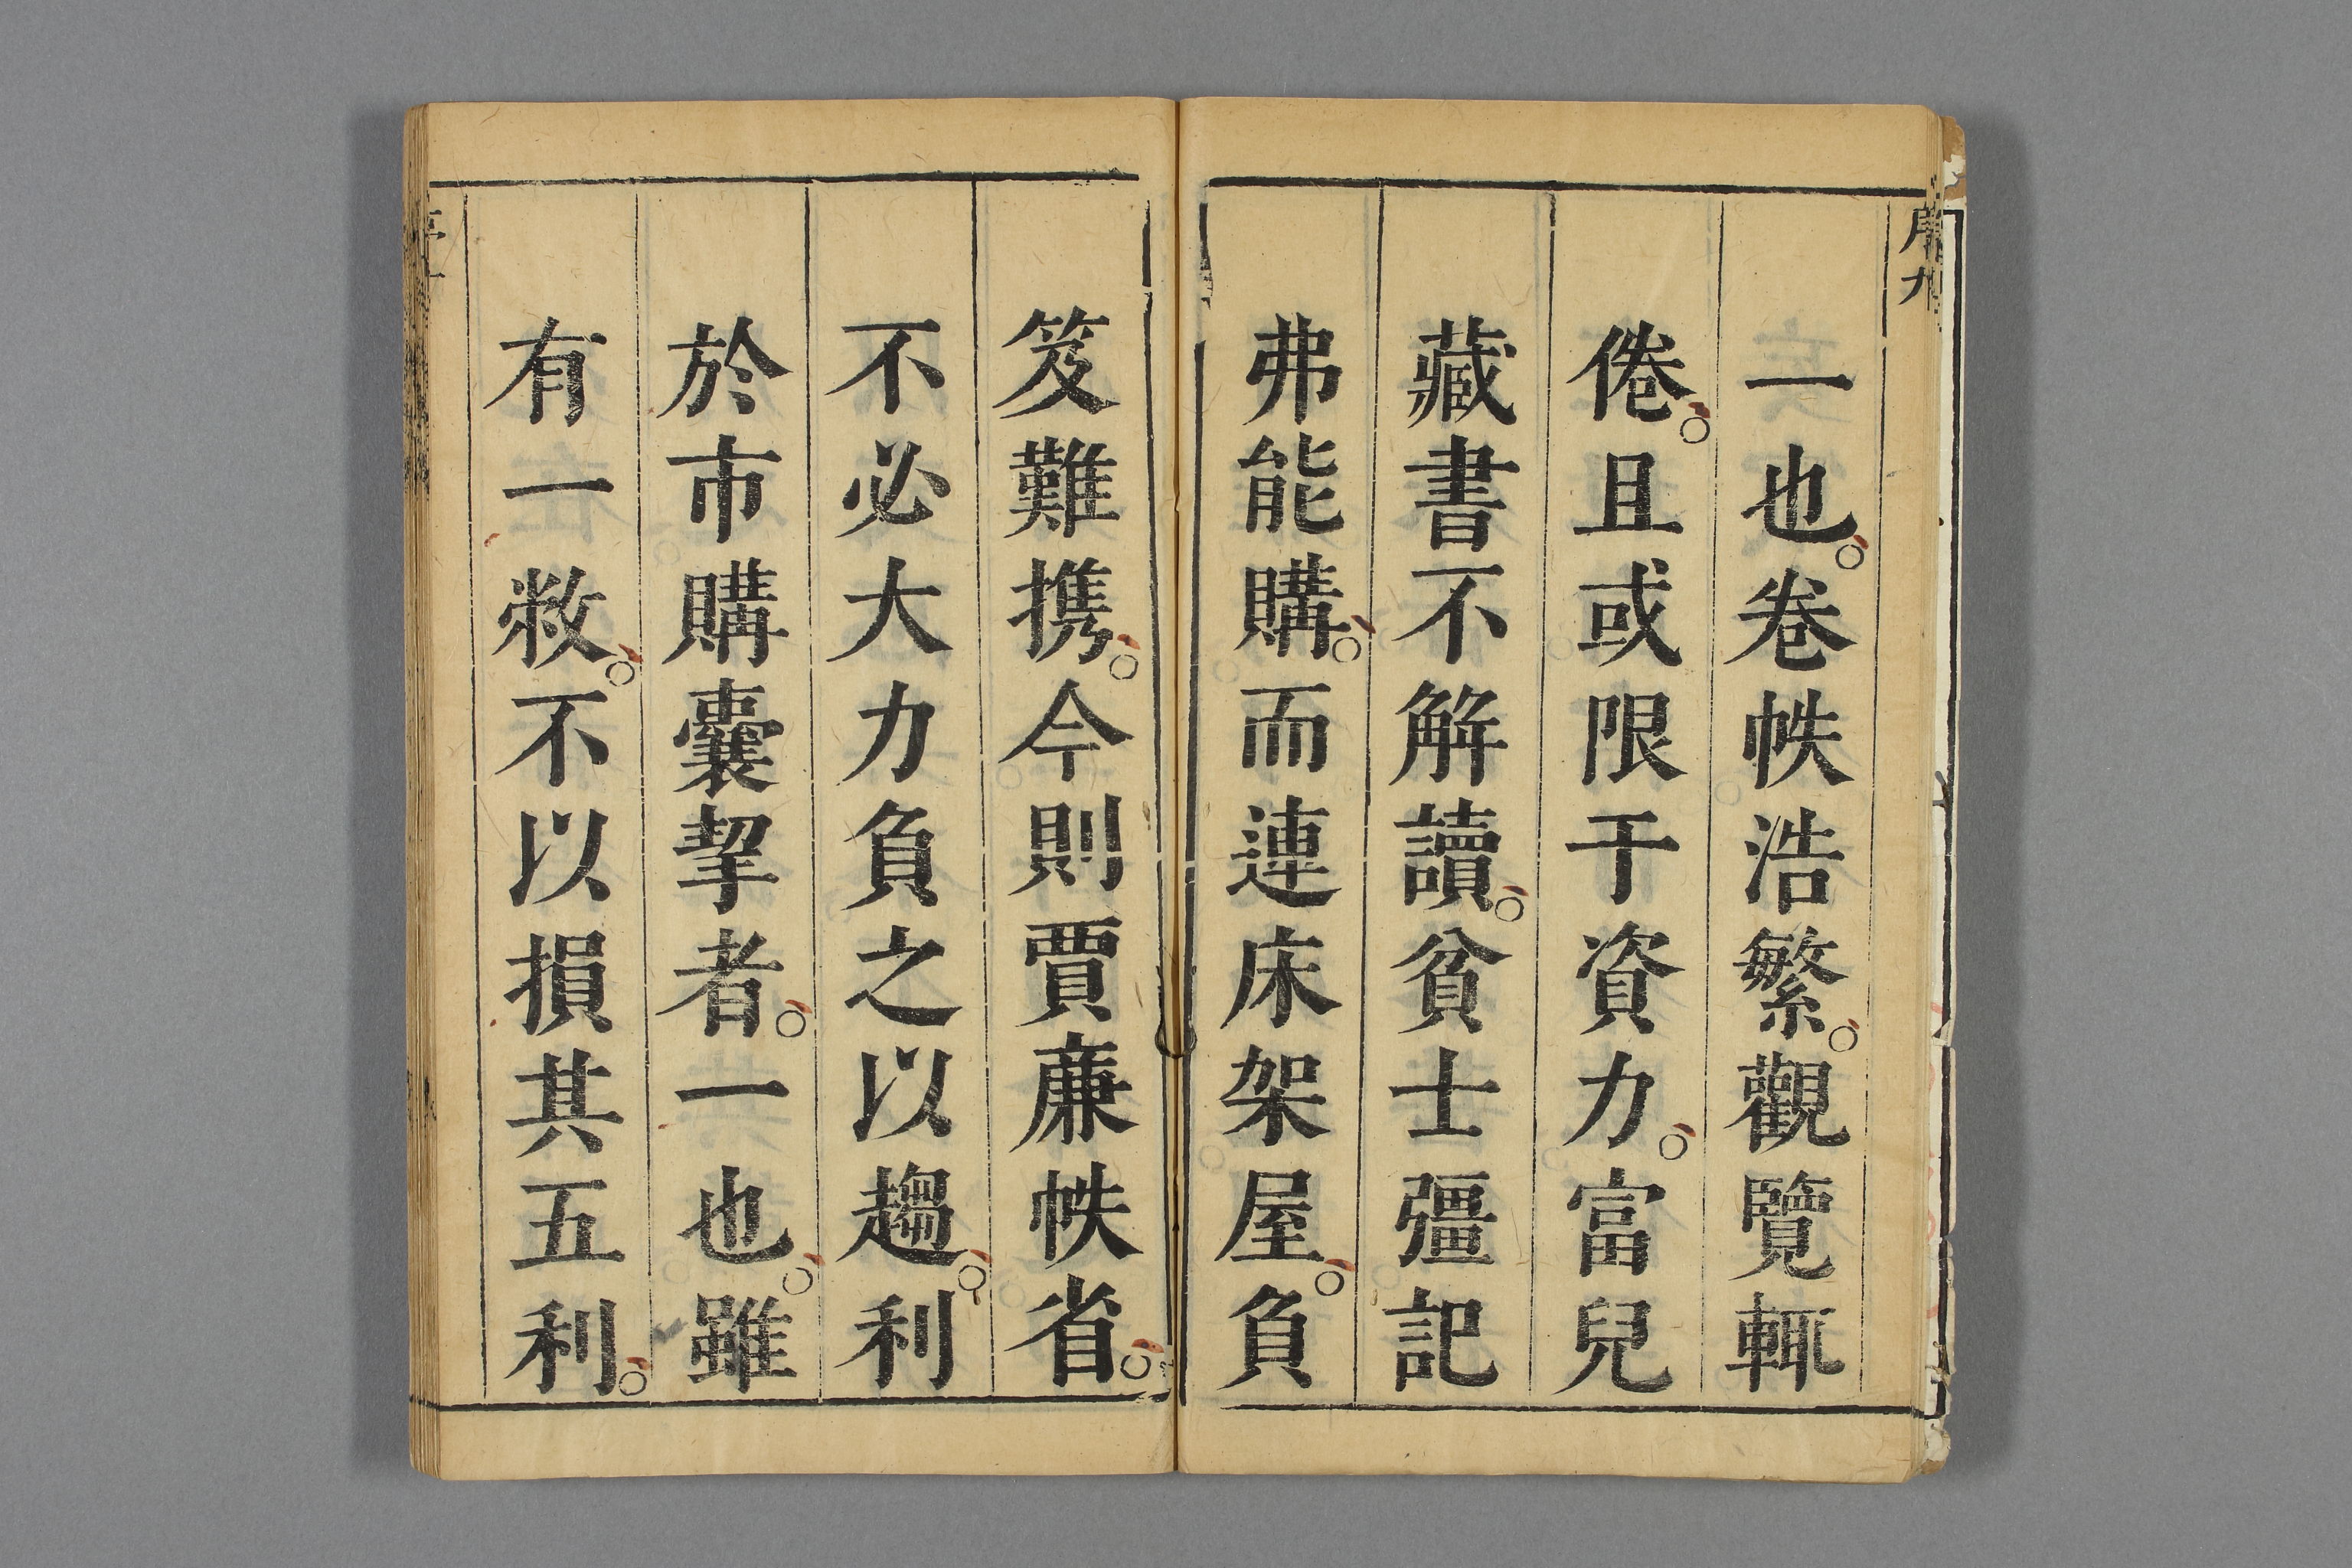 序九
一也。卷帙浩繁。觀覽輒
倦。且或限于資力。富兒
藏書不解讀。貧士彊記
弗能購。而連床架屋。負
笈難携。今則賈廉帙省。
不必大力負之以趨。利
於市購囊挈者。一也。雖
有一敝。不以損其五利。